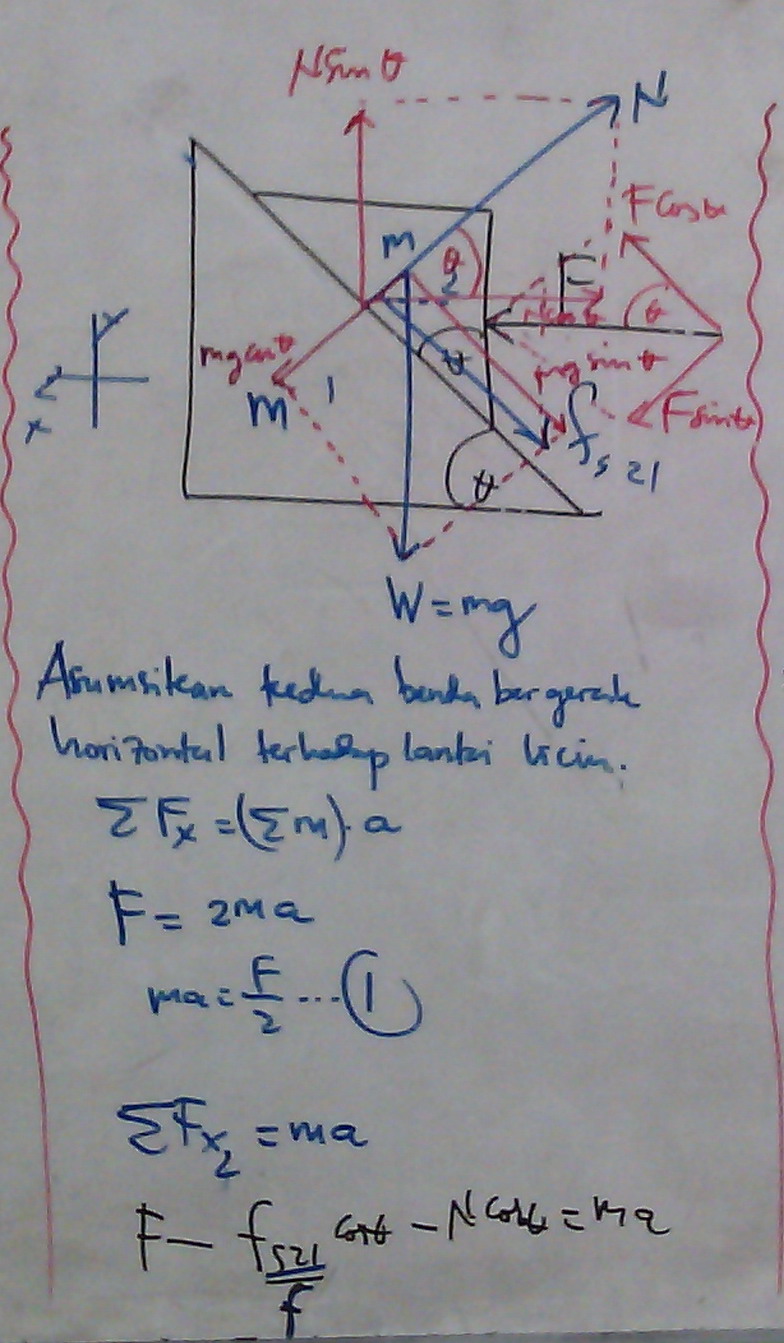 N sin θ
N
F cos θ
m
θ
2
F
θ
mg cos θ
θ
mg sin θ
m 1
f_s 21
F sin θ
y
x
θ
W = mg
Asumsikan kedua benda bergerak
horizontal terhadap lantai licin.
Σ F_x = (Σ m) . a
F = 2ma
ma = F/2 ... ①
ΣF_x2 = ma
F - f_s21 cos θ - N cos θ = ma
f